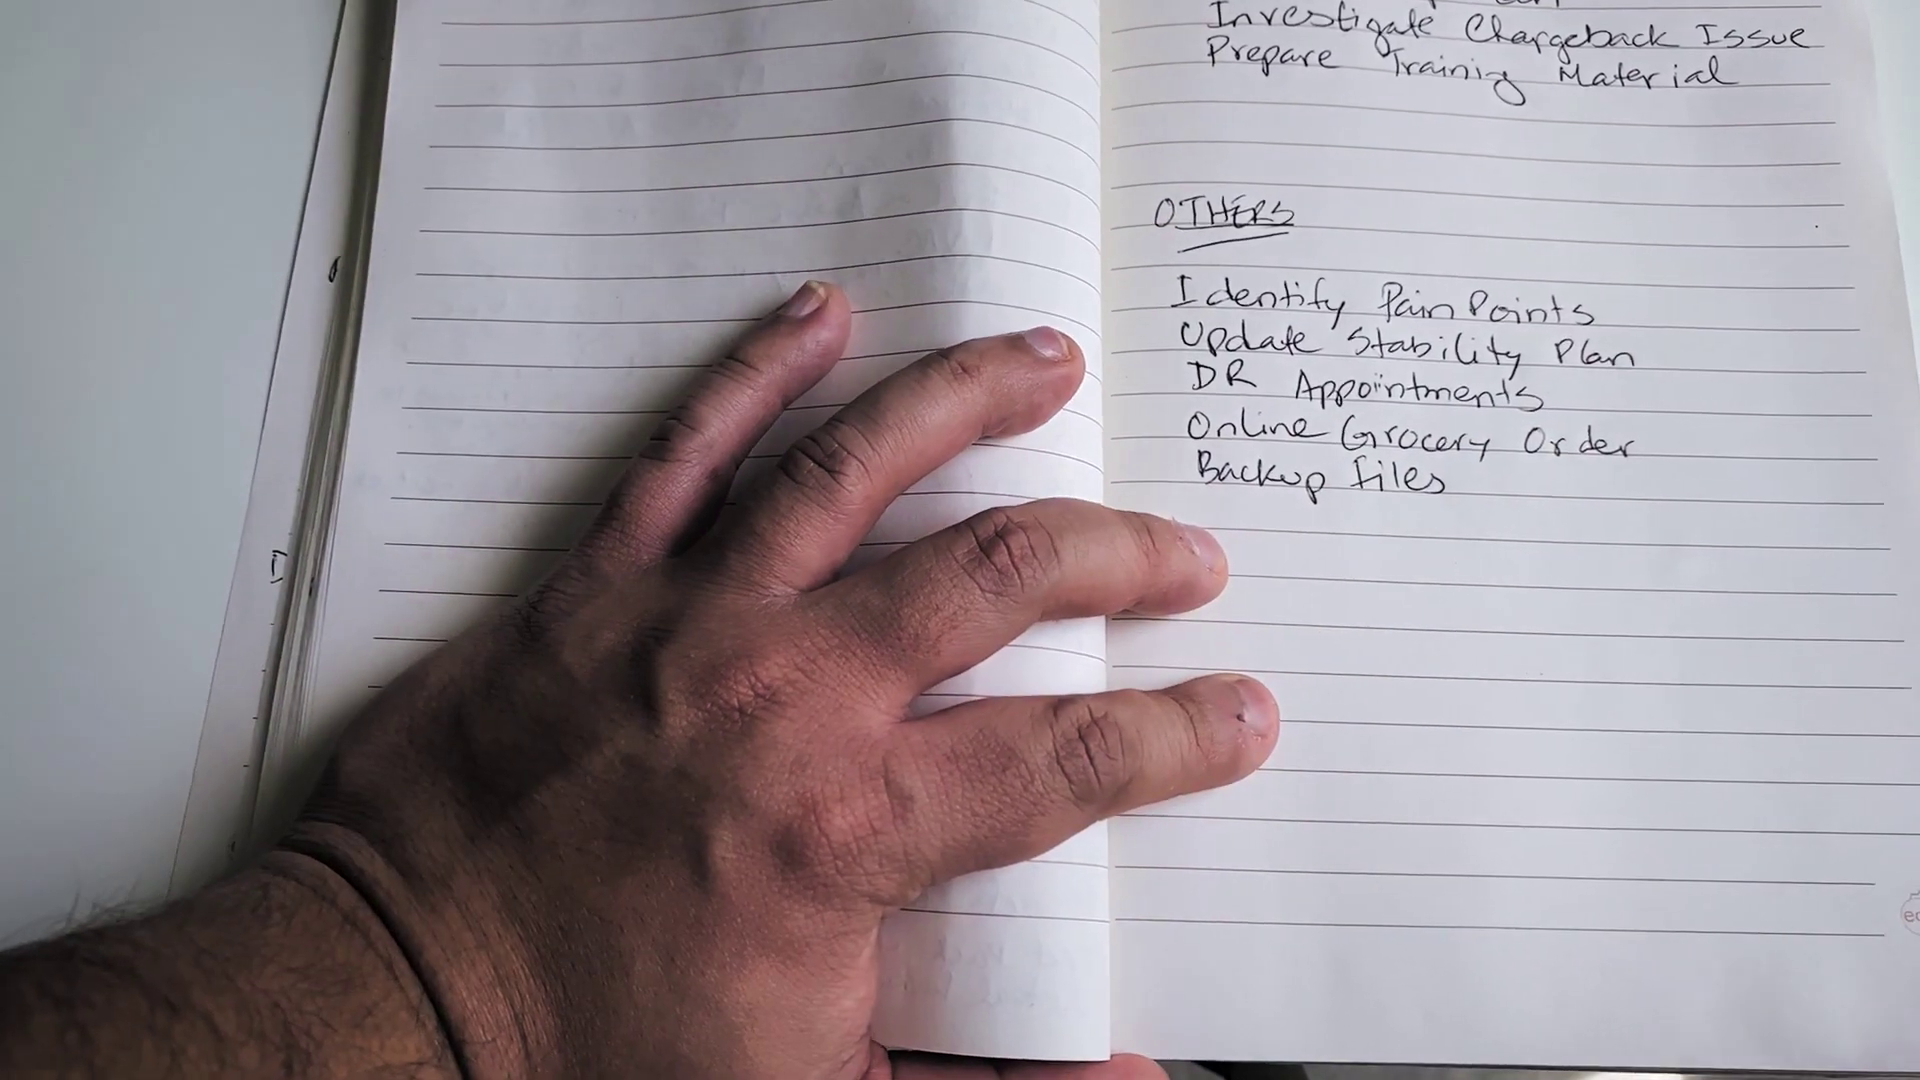 Investigate Chargeback Issue
Prepare Training Material
OTHERS
Identify Pain Points
Update Stability Plan
DR Appointments
Online Grocery Order
Backup Files